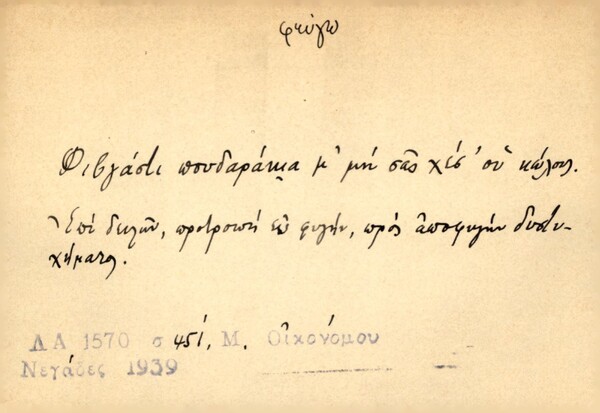 φεύγω
Φιβγάστι πουδαράκια μ' μή σᾶς χέσ' οὑ κώλους.
Ἐπί δειλῶν, προτροπή εἰς φυγήν, πρός ἀποφυγήν δυστυ-
χήματος.
ΛΑ 1570 σ 451, Μ. Οἰκονόμου
Νεγάδες 1939